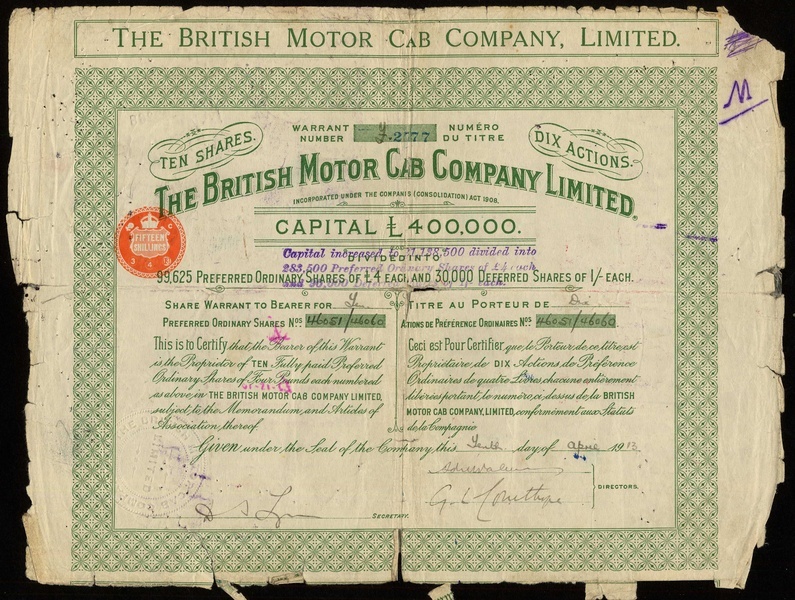 THE BRITISH MOTOR CAB COMPANY, LIMITED.
M
TEN SHARES.
WARRANT NUMBER
2577
NUMÉRO DU TITRE
DIX ACTIONS.
THE BRITISH MOTOR CAB COMPANY LIMITED.
INCORPORATED UNDER THE COMPANIES (CONSOLIDATION) ACT 1908.
CAPITAL £400,000.
FIFTEEN SHILLINGS
DIVIDED INTO
Capital increased to £1,188,500 divided into
283,500 Preferred Ordinary Shares of £4 each
99,625 PREFERRED ORDINARY SHARES OF £4 EACH, AND 30,000 DEFERRED SHARES OF 1/- EACH.
SHARE WARRANT TO BEARER FOR
PREFERRED ORDINARY SHARES Nos 46051/46060
This is to Certify that the Bearer of this Warrant
is the Proprietor of TEN Fully paid Preferred
Ordinary Shares of Four Pounds each numbered
as above, in THE BRITISH MOTOR CAB COMPANY LIMITED,
subject to the Memorandum and Articles of
Association thereof.
TITRE AU PORTEUR DE Dix
ACTIONS DE PRÉFÉRENCE ORDINAIRES Nos 46051/46060.
Ceci est Pour Certifier, que le Porteur de ce titre est
Propriétaire de DIX Actions de Préférence
Ordinaires de quatre Livres, chacune entièrement
libérées portant le numéro ci dessus de la BRITISH
MOTOR CAB COMPANY, LIMITED, conformément aux Statuts
de la Compagnie
Given under the Seal of the Company this Tenth day of April 1913
DIRECTORS.
SECRETARY.